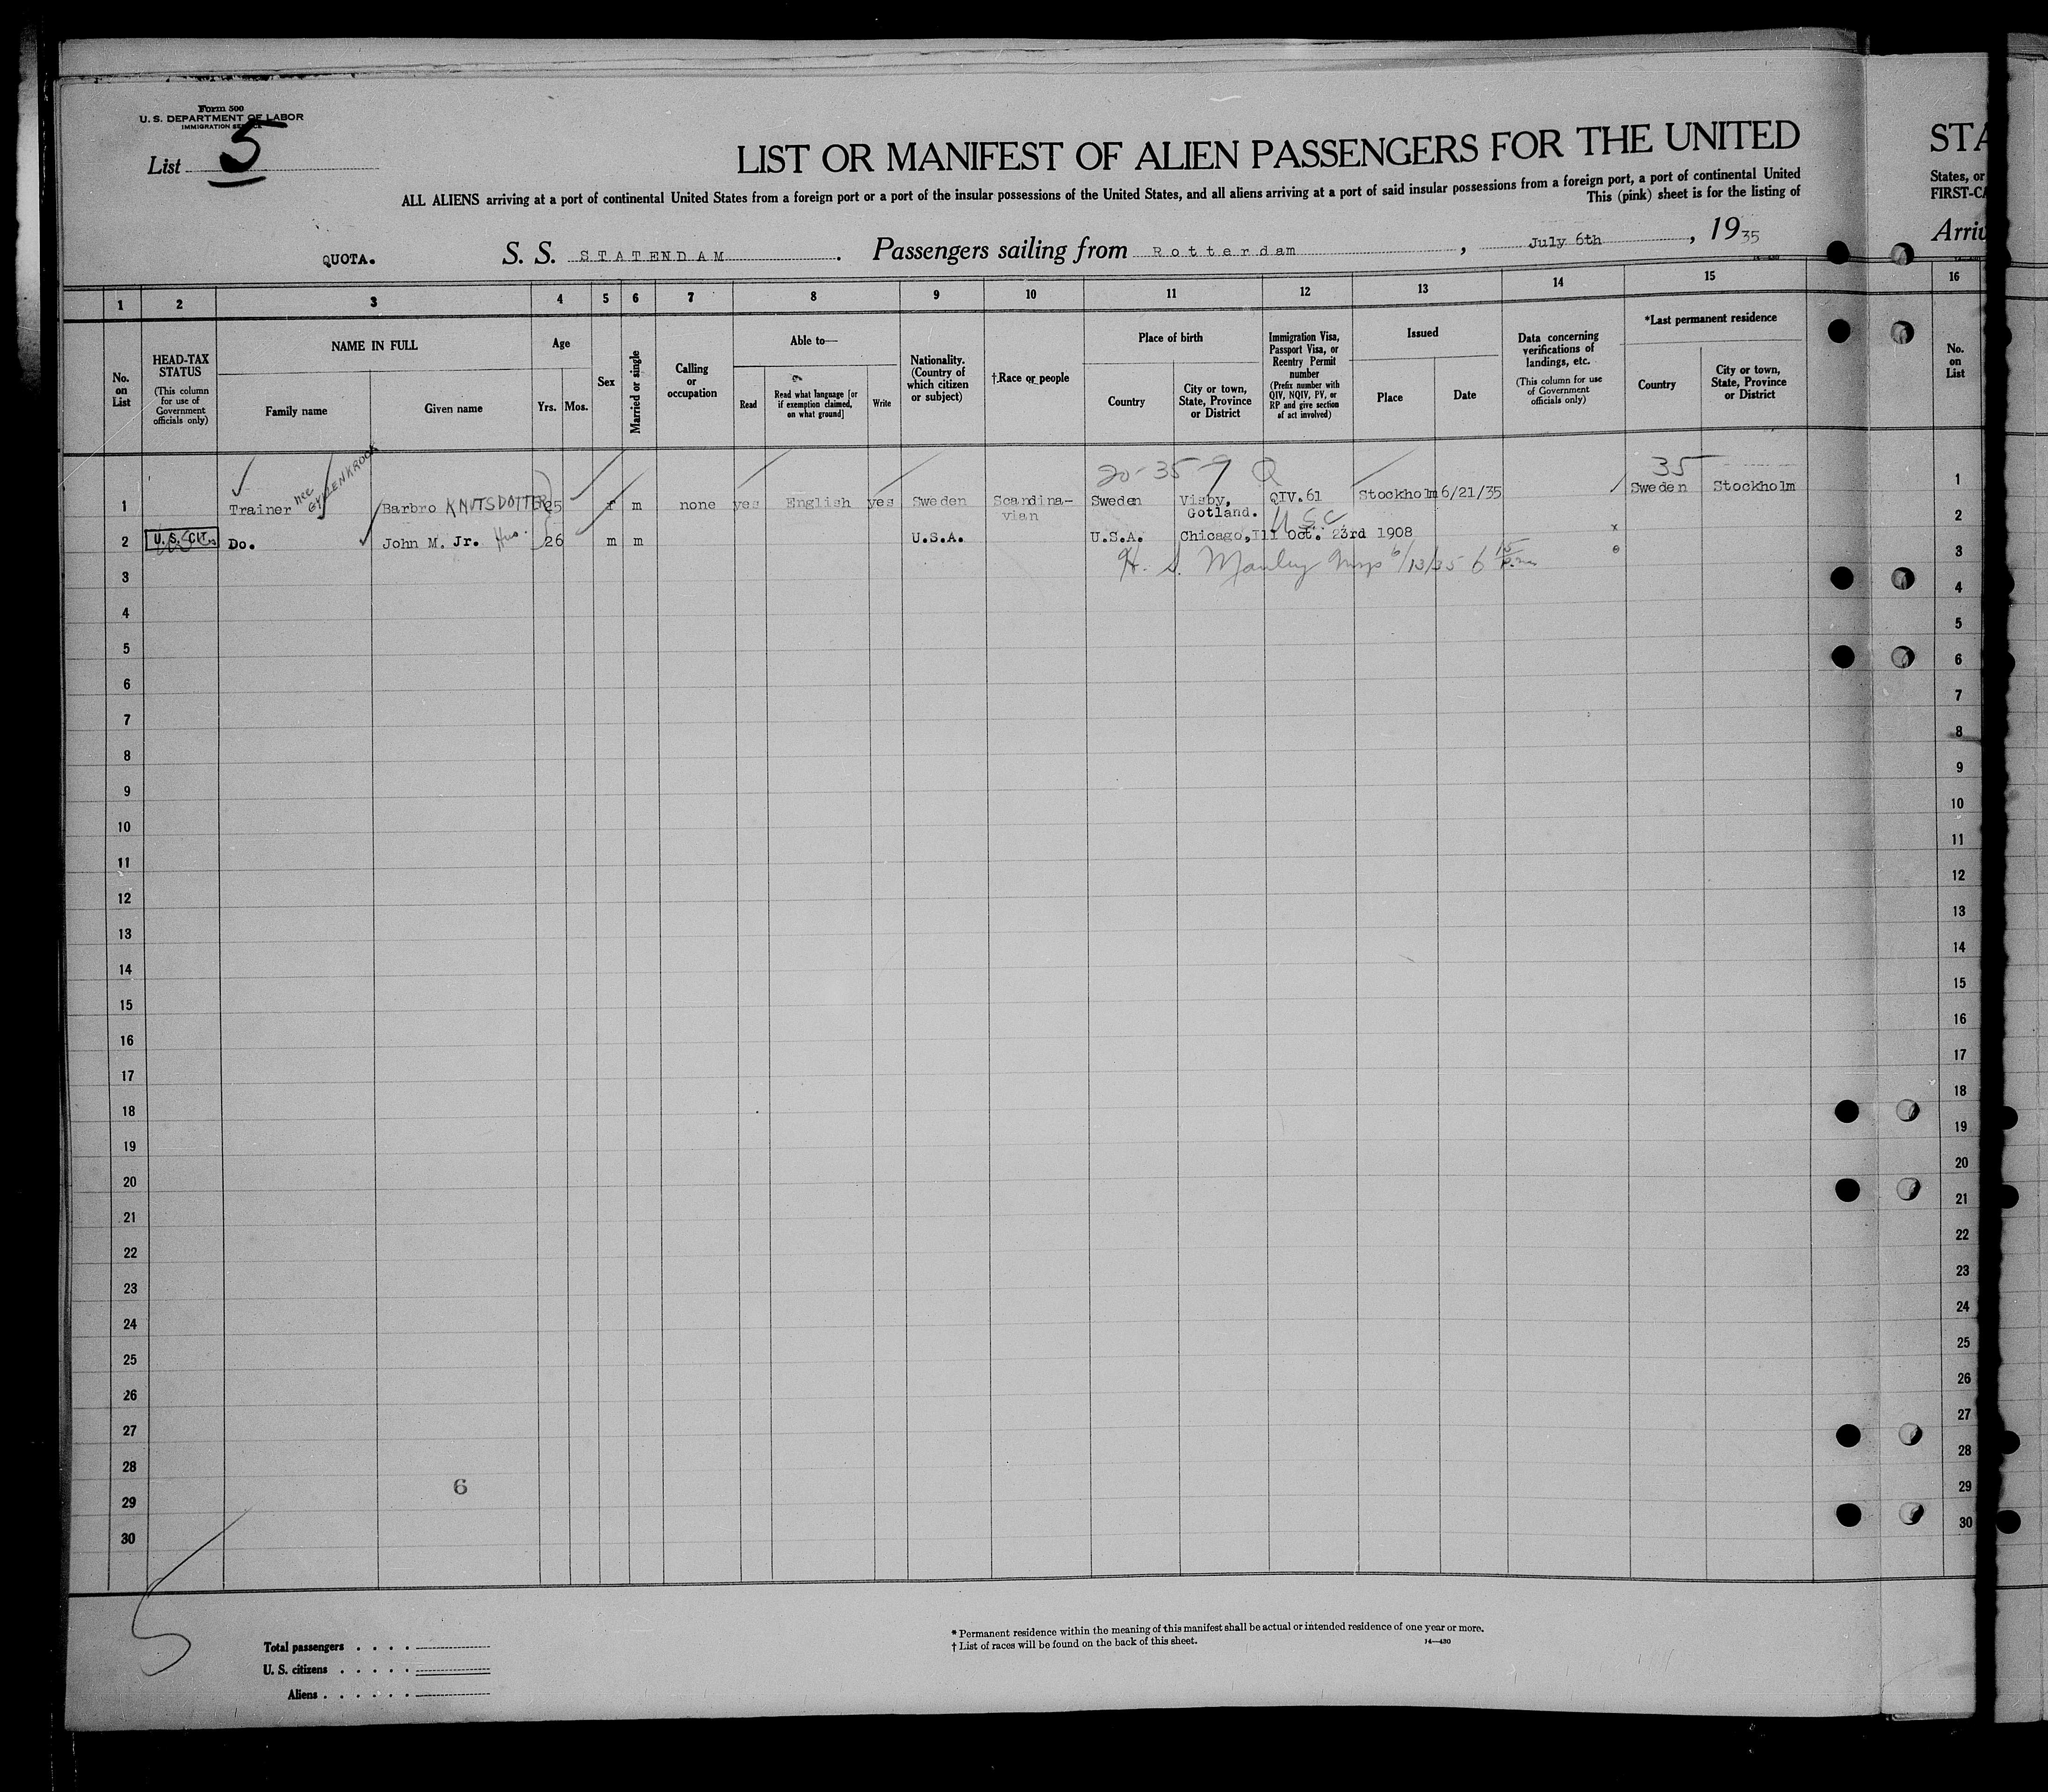 Form 500
U. S. DEPARTMENT OF LABOR
IMMIGRATION SERVICE
List 5
LIST OR MANIFEST OF ALIEN PASSENGERS FOR THE UNITED
STA
ALL ALIENS arriving at a port of continental United States from a foreign port or a port of the insular possessions of the United States, and all aliens arriving at a port of said insular possessions from a foreign port, a port of continental United
States, or
This (pink) sheet is for the listing of
FIRST-CA
QUOTA. S. S. STATENDAM. Passengers sailing from Rotterdam, July 6th, 1935
Arriv
1 2 3 4 5 6 7 8 9 10 11 12 13 14 15 16
No. on List
HEAD-TAX STATUS
(This column for use of Government officials only)
NAME IN FULL
Family name
Given name
Age
Yrs. Mos.
Sex
Married or single
Calling or occupation
Able to—
Read
Read what language [or if exemption claimed, on what ground]
Write
Nationality. (Country of which citizen or subject)
†Race or people
Place of birth
Country
City or town, State, Province or District
Immigration Visa, Passport Visa, or Reentry Permit number
(Prefix number with QIV, NQIV, PV, or RP and give section of act involved)
Issued
Place
Date
Data concerning verifications of landings, etc.
(This column for use of Government officials only)
*Last permanent residence
Country
City or town, State, Province or District
No. on List
20-35-9 Q 35
1 Trainer nee GYLLENKROOK Barbro KNUTSDOTTER 25 f m none yes English yes Sweden Scandina-vian Sweden Visby, Gotland. QIV.61 Stockholm 6/21/35 Sweden Stockholm 1
U S C
2 U. S. CIT. Do. John M. Jr. Hus. 26 m m U.S.A. U.S.A. Chicago, Ill Oct. 23rd 1908 x 2
H. S. Manley 6/13/35 6 15 p.m
3 3
4 4
5 5
6 6
7 7
8 8
9 9
10 10
11 11
12 12
13 13
14 14
15 15
16 16
17 17
18 18
19 19
20 20
21 21
22 22
23 23
24 24
25 25
26 26
27 27
28 28
6
29 29
30 30
5
Total passengers . . . .
U. S. citizens . . . . .
Aliens . . . . . .
* Permanent residence within the meaning of this manifest shall be actual or intended residence of one year or more.
† List of races will be found on the back of this sheet. 14—430